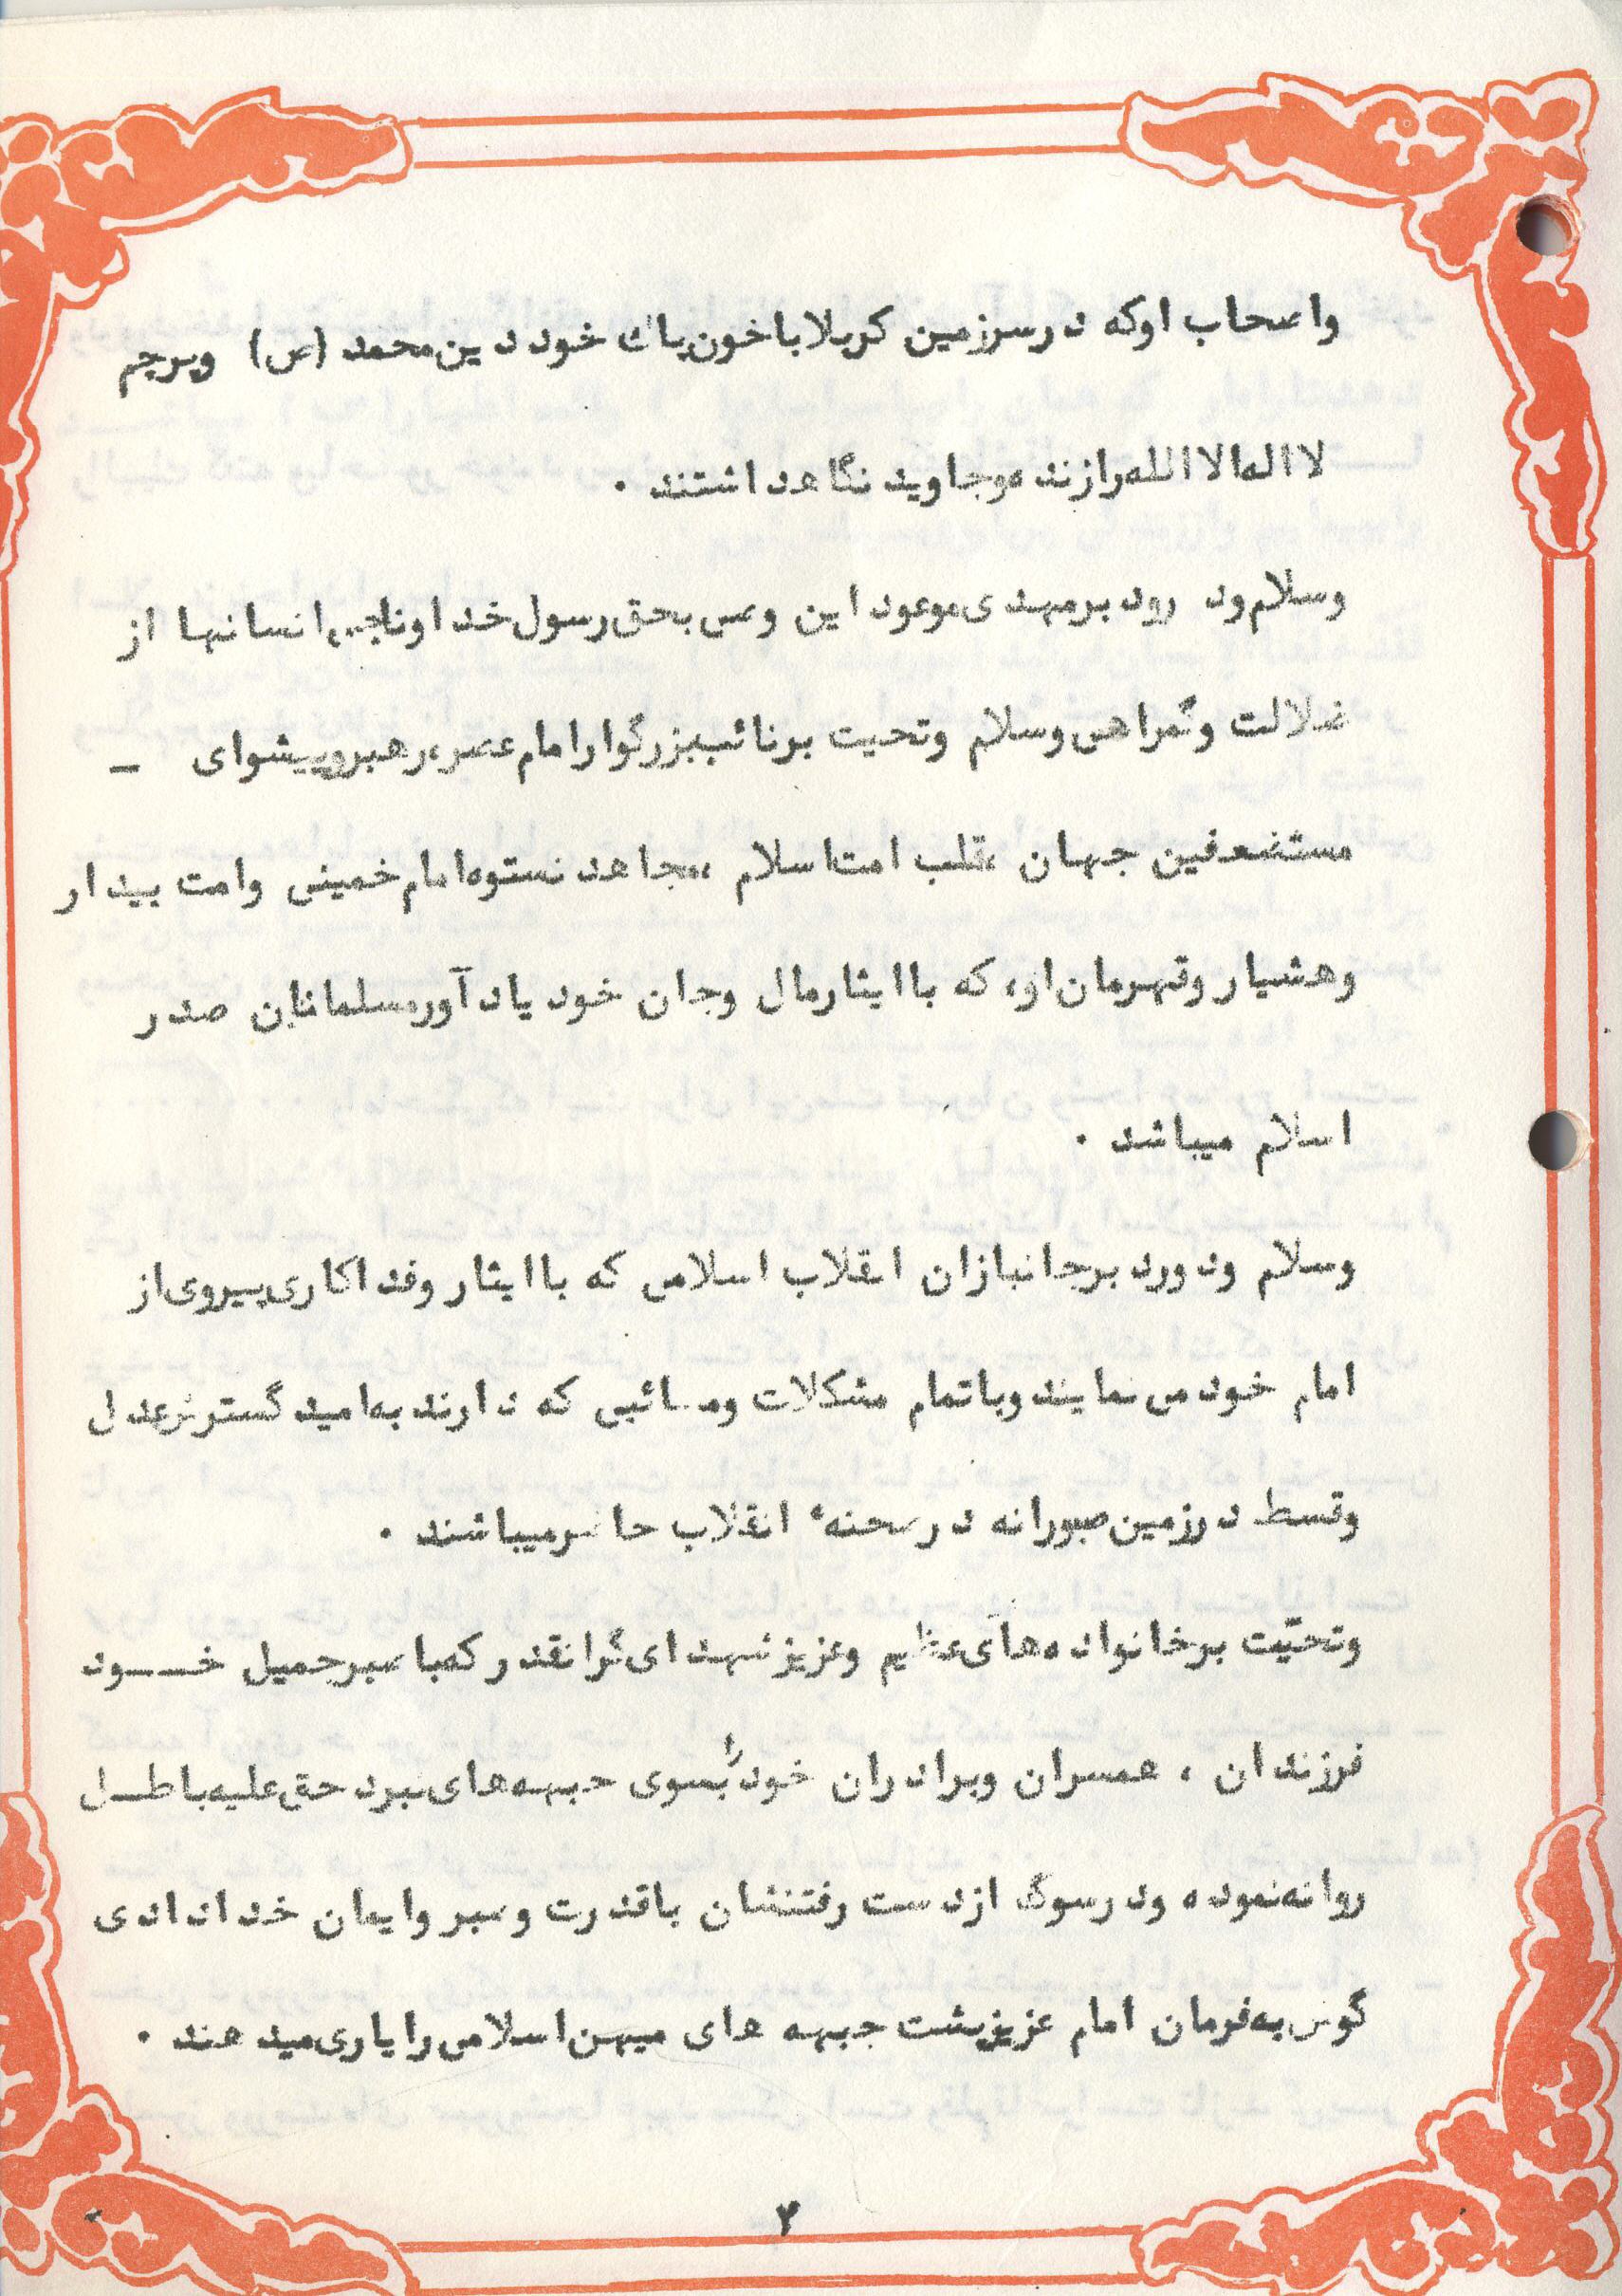 واصحاب اوکه درسرزمین کربلا باخون پاك خود دین محمد (ص) وپرچم
لااله الا الله رازنده وجاوید نگاهداشتند .
وسلام ودرود برمهدی موعود این وصی بحق رسول خدا وناجی انسانها از
ضلالت وگمراهی وسلام وتحیت برنائب بزرگوار امام عصر، رهبروپیشوای –
مستضعفین جهان ،قلب امت اسلام ،مجاهد نستوه امام خمینی وامت بیدار
وهشیار وقهرمان او، که باایثارمال وجان خود یادآورمسلمانان صدر
اسلام میباشد .
وسلام ودورد برجانبازان انقلاب اسلامی که باایثار وفداکاری پیروی از
امام خود می نمایند وباتمام مشکلات ومصائبی که دارند به امید گسترش عدل
وقسط درزمین صبورانه درصحنهٔ انقلاب حاضرمیباشند .
وتحیّت برخانواده های عظیم وعزیزشهدای گرانقدر که با صبرجمیل خــود
فرزندان ، همسران وبرادران خود را بسوی جبهه های نبرد حق علیه باطــل
روانه نموده ودرسوگ ازدست رفتنشان باقدرت وصبر وایمان خدادادی
گوش به فرمان امام عزیزپشت جبهه های میهن اسلامی رایاری میدهند .
۲